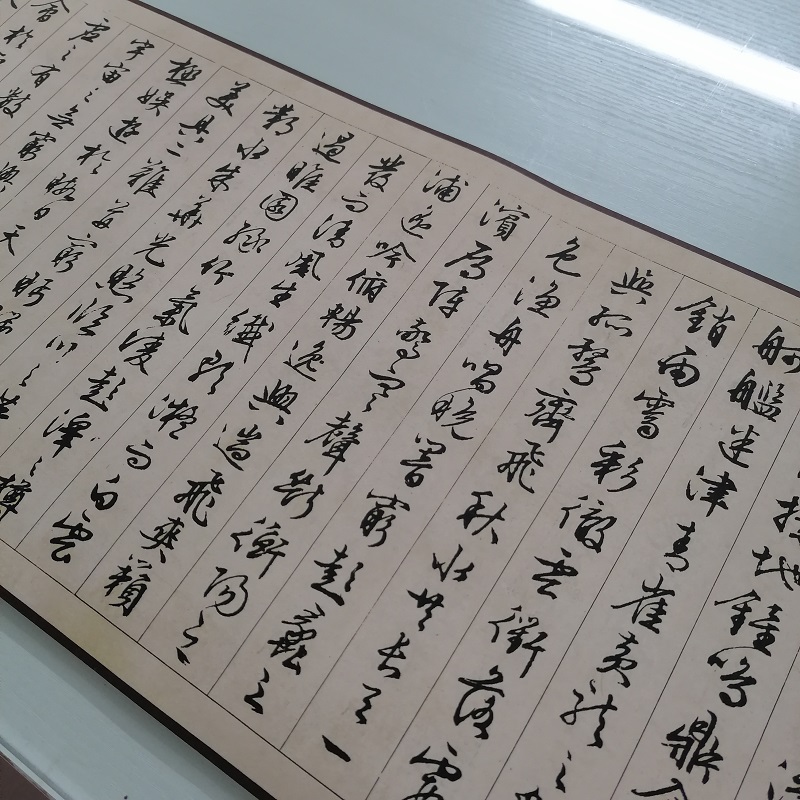 撲地鐘鳴鼎食
舸艦迷津青雀黃龍之
銷雨霽彩徹雲衢落霞
與孤鶩齊飛秋水共長天一
色漁舟唱晚響窮彭蠡之
濱雁陣驚寒聲斷衡陽之
浦遙吟俯暢逸興遄飛爽籟
發而清風生纖歌凝而白雲
遏睢園綠竹氣凌彭澤之樽
鄴水朱華光照臨川之筆
美具二難並窮睇眄
極娛遊於暇日天
宇宙之無窮興
虛之有數